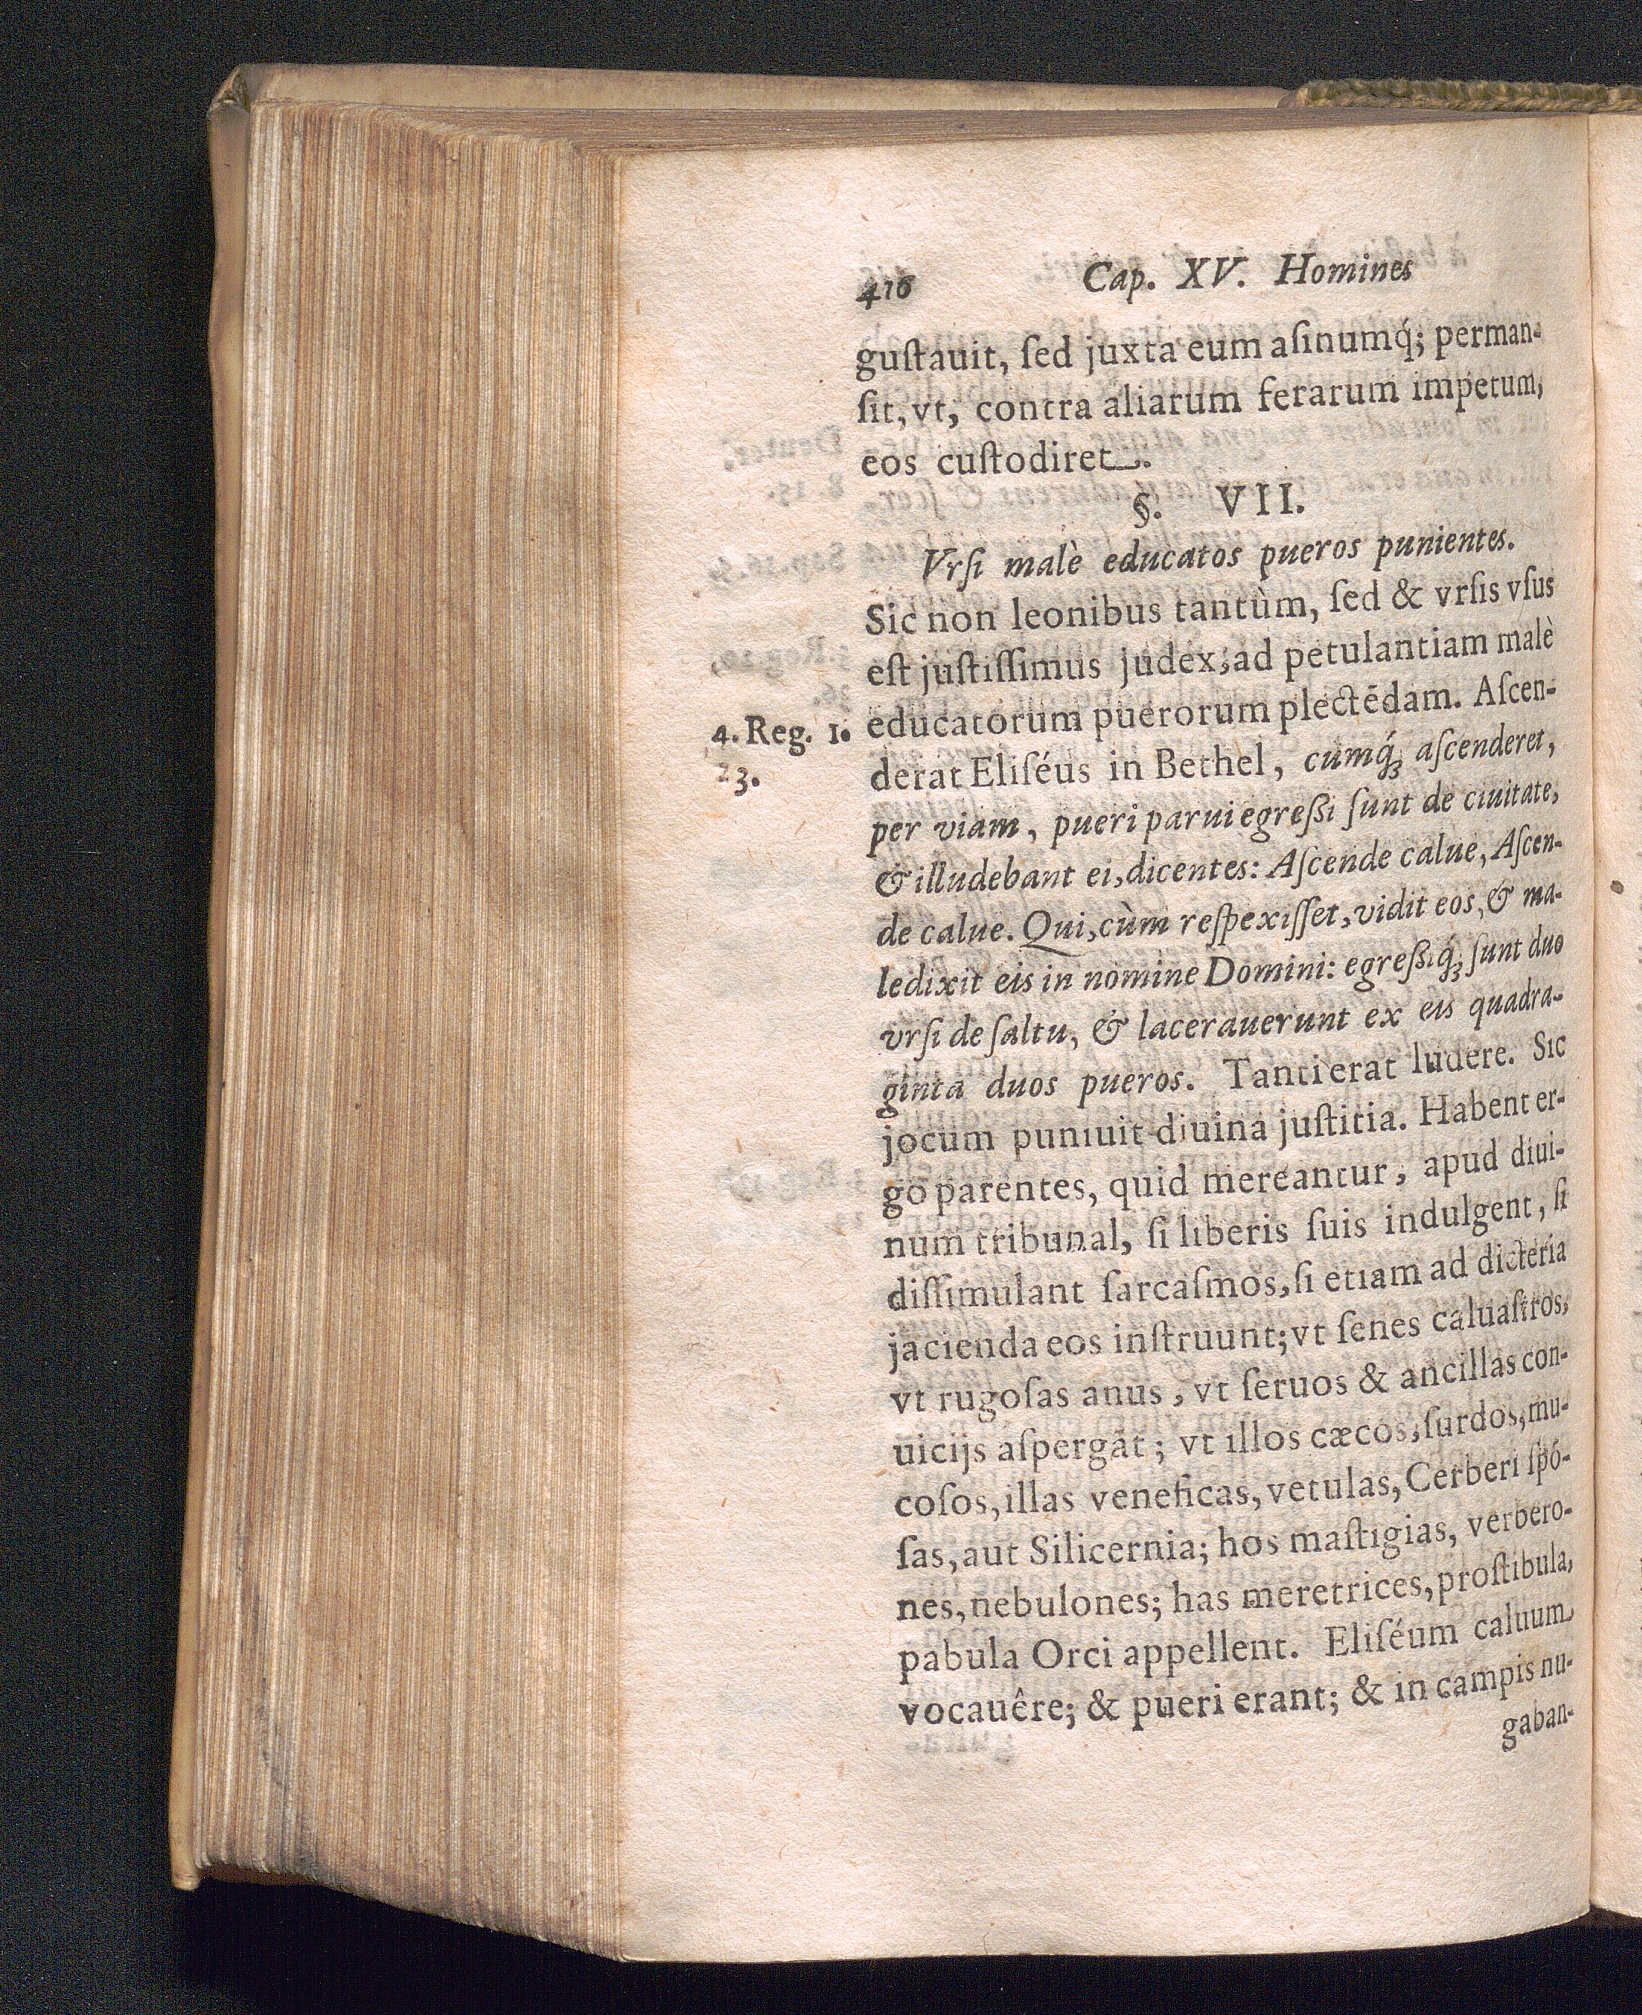 416 Cap. XV. Homines
guſtauit, ſed juxta eum aſinumq́; perman-
ſit, vt, contra aliarum ferarum impetum,
eos cuſtodiret.
§. VII.
Vrſi malè educatos pueros punientes.
Sic non leonibus tantùm, ſed & vrſis vſus
eſt juſtiſſimus judex, ad petulantiam malè
4. Reg. 1. educatorum puerorum plectēdam. Aſcen-
23. derat Eliſéus in Bethel, cumq́ꝫ aſcenderet,
per viam, pueri parui egreßi ſunt de ciuitate,
& illudebant ei, dicentes: Aſcende calue, Aſcen-
de calue. Qui, cùm reſpexiſſet, vidit eos, & ma-
ledixit eis in nomine Domini: egreßiq́ꝫ ſunt duo
vrſi de ſaltu, & lacerauerunt ex eis quadra-
ginta duos pueros. Tanti erat ludere. Sic
jocum puniuit diuina juſtitia. Habent er-
go parentes, quid mereantur, apud diui-
num tribunal, ſi liberis ſuis indulgent, ſi
diſſimulant ſarcaſmos, ſi etiam ad dicteria
jacienda eos inſtruunt; vt ſenes caluaſtros,
vt rugoſas anus, vt ſeruos & ancillas con-
uicijs aſpergāt; vt illos cæcos, ſurdos, mu-
coſos, illas veneficas, vetulas, Cerberi ſpó-
ſas, aut Silicernia; hos maſtigias, verbero-
nes, nebulones; has meretrices, proſtibula,
pabula Orci appellent. Eliſéum caluum
vocauêre; & pueri erant; & in campis nu-
gaban-